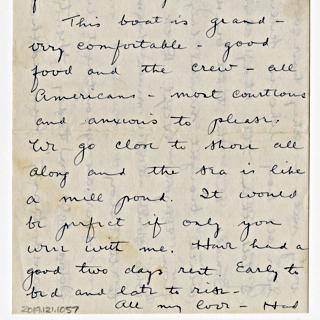 This boat is grand -
very comfortable - good
food and the crew - all
Americans - most courteous
and anxious to please.
We go close to shore all
along and the sea is like
a mill pond. It would
be perfect if only you
were with me. Have had a
good two days rest. Early to
bed and late to rise -
All my love - Had
2019.121.1057